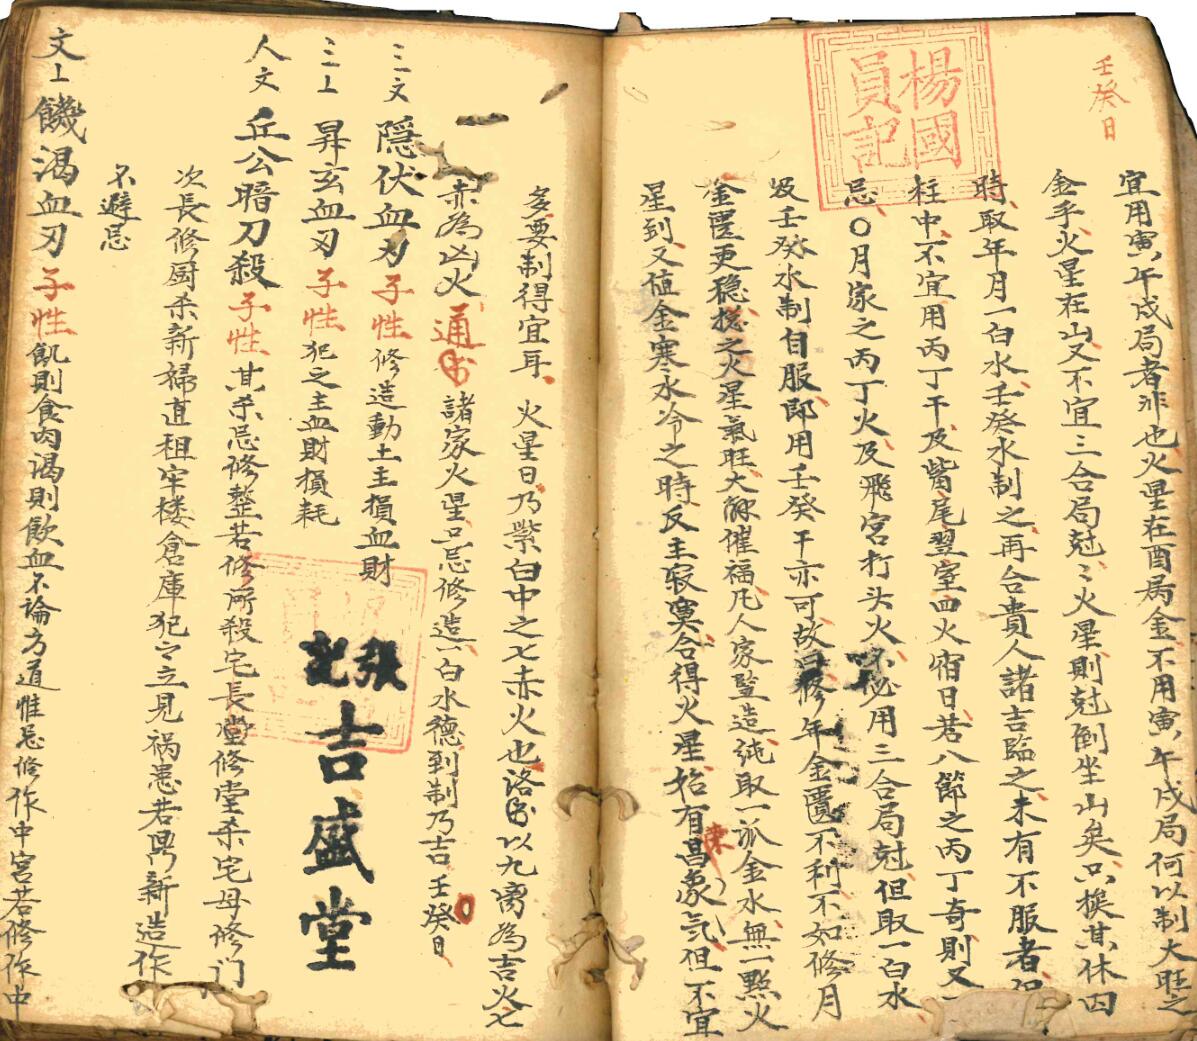 壬癸日
楊國
員記
宜用寅午戌局者非也火星在酉局金不用寅午戌局何以制大旺之
金乎火星在山又不宜三合局尅〻火星則尅倒坐山矣只候其休囚
時取年月一白水壬癸水制之再合貴人諸吉臨之未有不服者
柱中不宜用丙丁干及觜尾翌室四火宿日㔫八節之丙丁奇則又
忌〇月家之丙丁火及飛宮打头火不必用三合局尅但取一白水
及壬癸水制自服即用壬癸干亦可故曰修年金匱不利不如修月
金匱更稳捴之火星氣旺大能催福凡人家竪造純取一派金水無一點火
星到又值金寒水冷之時反主寂寞合得火星始有昌象气但不宜
多要制得宜耳 火星日乃紫白中之七赤火也洛书以九离為吉火七
赤為凶火通书諸家火星只忌修造一白水德到制乃吉壬癸日
〻文 隱伏血刃子性修造動土主損血財
〻丄 昇玄血刃子性犯之主血財損耗
記張
吉盛堂
人文 丘公暗刀殺子性其杀忌修整若修所殺宅長堂修堂杀宅母修门
次長修厨杀新婦道租牢楼倉庫犯之立見祸患若興新造作
不避忌
文丄 饑渴血刃子性飢則食肉渴則飲血不論方道惟忌修作中宮若修作中